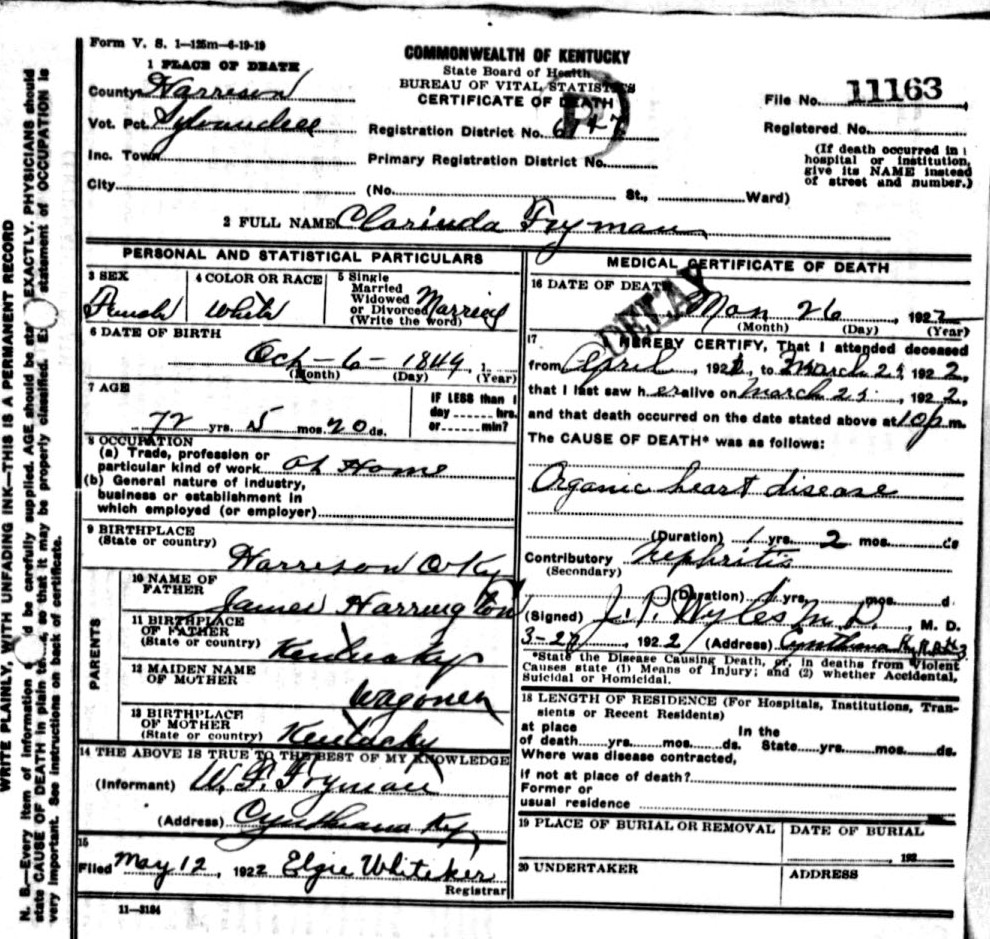 Form V. S. 1—125m—6-19-19
COMMONWEALTH OF KENTUCKY
State Board of Health
BUREAU OF VITAL STATISTICS
CERTIFICATE OF DEATH
1 PLACE OF DEATH
County Harrison
Vot. Pct. Sylvandell
Inc. Town
City
Registration District No.
Primary Registration District No.
(No. St., Ward)
File No. 11163
Registered No.
(If death occurred in
hospital or institution,
give its NAME instead
of street and number.)
2 FULL NAME Clarinda Fryman
PERSONAL AND STATISTICAL PARTICULARS
3 SEX
Female
4 COLOR OR RACE
White
5 Single
Married
Widowed
or Divorced
(Write the word)
Married
6 DATE OF BIRTH
Oct - 6 - 1849, 1
(Month) (Day) (Year)
7 AGE
72 yrs. 5 mos. 20 ds.
IF LESS than 1
day ------ hrs.
or ------ min?
8 OCCUPATION
(a) Trade, profession or
particular kind of work At Home
(b) General nature of industry,
business or establishment in
which employed (or employer)
9 BIRTHPLACE
(State or country)
Harrison Co Ky
PARENTS
10 NAME OF
FATHER
James Harrington
11 BIRTHPLACE
OF FATHER
(State or country)
Kentucky
12 MAIDEN NAME
OF MOTHER
Wagoner
13 BIRTHPLACE
OF MOTHER
(State or country)
Kentucky
14 THE ABOVE IS TRUE TO THE BEST OF MY KNOWLEDGE
(Informant) W. F. Fryman
(Address) Cynthiana Ky
15
Filed May 12, 1922 Elgie Whitaker
Registrar
11—3184
MEDICAL CERTIFICATE OF DEATH
16 DATE OF DEATH
DELAY
Mar 26, 1922
(Month) (Day) (Year)
17 I HEREBY CERTIFY, That I attended deceased
from April, 192 to March 1922,
that I last saw her alive on March 1922,
and that death occurred on the date stated above at 10 p m.
The CAUSE OF DEATH* was as follows:
Organic heart disease
(Duration) 1 yrs. 2 mos. ds
Contributory Nephritis
(Secondary)
(Duration) 1 yrs. mos. d.
(Signed) J. P. Wyles M. D., M. D.
1922 (Address) Cynthiana Ky
*State the Disease Causing Death, or, in deaths from Violent
Causes state (1) Means of Injury; and (2) whether Accidental,
Suicidal or Homicidal.
18 LENGTH OF RESIDENCE (For Hospitals, Institutions, Tran-
sients or Recent Residents)
at place In the
of death yrs. mos. ds. State yrs. mos. ds.
Where was disease contracted,
if not at place of death?
Former or
usual residence
19 PLACE OF BURIAL OR REMOVAL
DATE OF BURIAL
, 192
20 UNDERTAKER
ADDRESS
WRITE PLAINLY, WITH UNFADING INK—THIS IS A PERMANENT RECORD
N. B.—Every item of information d be carefully supplied. AGE should be sta EXACTLY. PHYSICIANS should
state CAUSE OF DEATH in plain te s, so that it may be properly classified. E statement of OCCUPATION is
very important. See instructions on back of certificate.